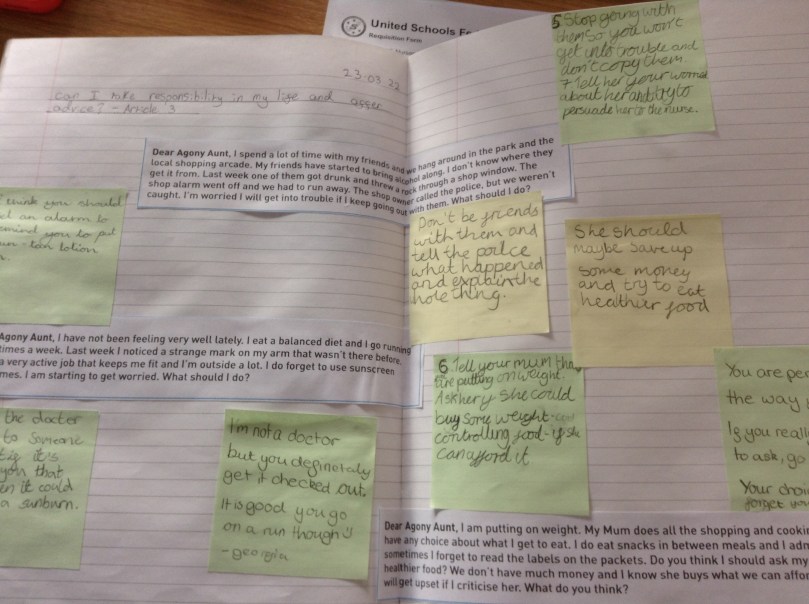 United Schools Fe
Requisition Form
23.03.22
can I take responsibility in my life and asser
advice? - Article 3
Dear Agony Aunt, I spend a lot of time with my friends and we hang around in the park and the
local shopping arcade. My friends have started to bring alcohol along. I don't know where they
get it from. Last week one of them got drunk and threw a rock through a shop window. The
shop alarm went off and we had to run away. The shop owner called the police, but we weren't
caught. I'm worried I will get into trouble if I keep going out with them. What should I do?
5 Stop going with
them so you won't
get into trouble and
don't copy them.
7 Tell her your
about her and try to
persuade her to the nurse.
think you should
an alarm to
you to put
lotion
Don't be friends
with them and
tell the
what happened
and explain the
hole thing.
She should
maybe save up
some money
and try to eat
healthier food
Agony Aunt, I have not been feeling very well lately. I eat a balanced diet and I go running
times a week. Last week I noticed a strange mark on my arm that wasn't there before.
a very active job that keeps me fit and I'm outside a lot. I do forget to use sunscreen
mes. I am starting to get worried. What should I do?
6 Tell your mum
are putting on weight.
Ask her if she could
buy some weight
controlling food if she
can afford it
You are per
the way
If you reall
to ask, go
Your choi
forget you
the doctor
to someone
it's
you that
it could
a sunburn.
I'm not a doctor
but you definetaly
get it checked out.
It is good you go
on a run though
- georgia
Dear Agony Aunt, I am putting on weight. My Mum does all the shopping and cookin
have any choice about what I get to eat. I do eat snacks in between meals and I adm
sometimes I forget to read the labels on the packets. Do you think I should ask my
healthier food? We don't have much money and I know she buys what we can affor
will get upset if I criticise her. What do you think?